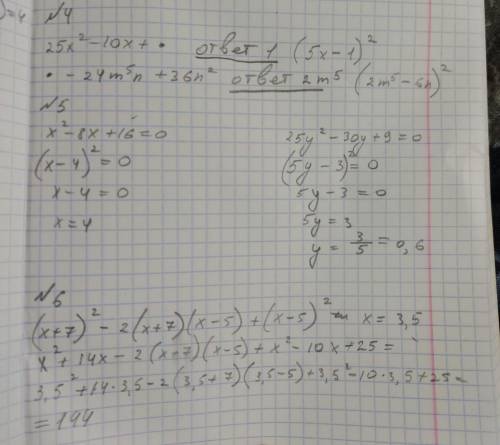 )=4
№4
25x² - 10x + • ответ 1 (5x - 1)²
• - 24m⁵n + 36n² ответ 2m⁵ (2m⁵ - 6n)²
№5
x² - 8x + 16 = 0
(x - 4)² = 0
x - 4 = 0
x = 4
25y² - 30y + 9 = 0
(5y - 3)² = 0
5y - 3 = 0
5y = 3
y = 3/5 = 0,6
№6
(x+7)² - 2(x+7)(x-5) + (x-5)² x = 3,5
x² + 14x - 2(x+7)(x-5) + x² - 10x + 25 =
3,5² + 14·3,5 - 2(3,5+7)(3,5-5) + 3,5² - 10·3,5 + 25 =
= 144